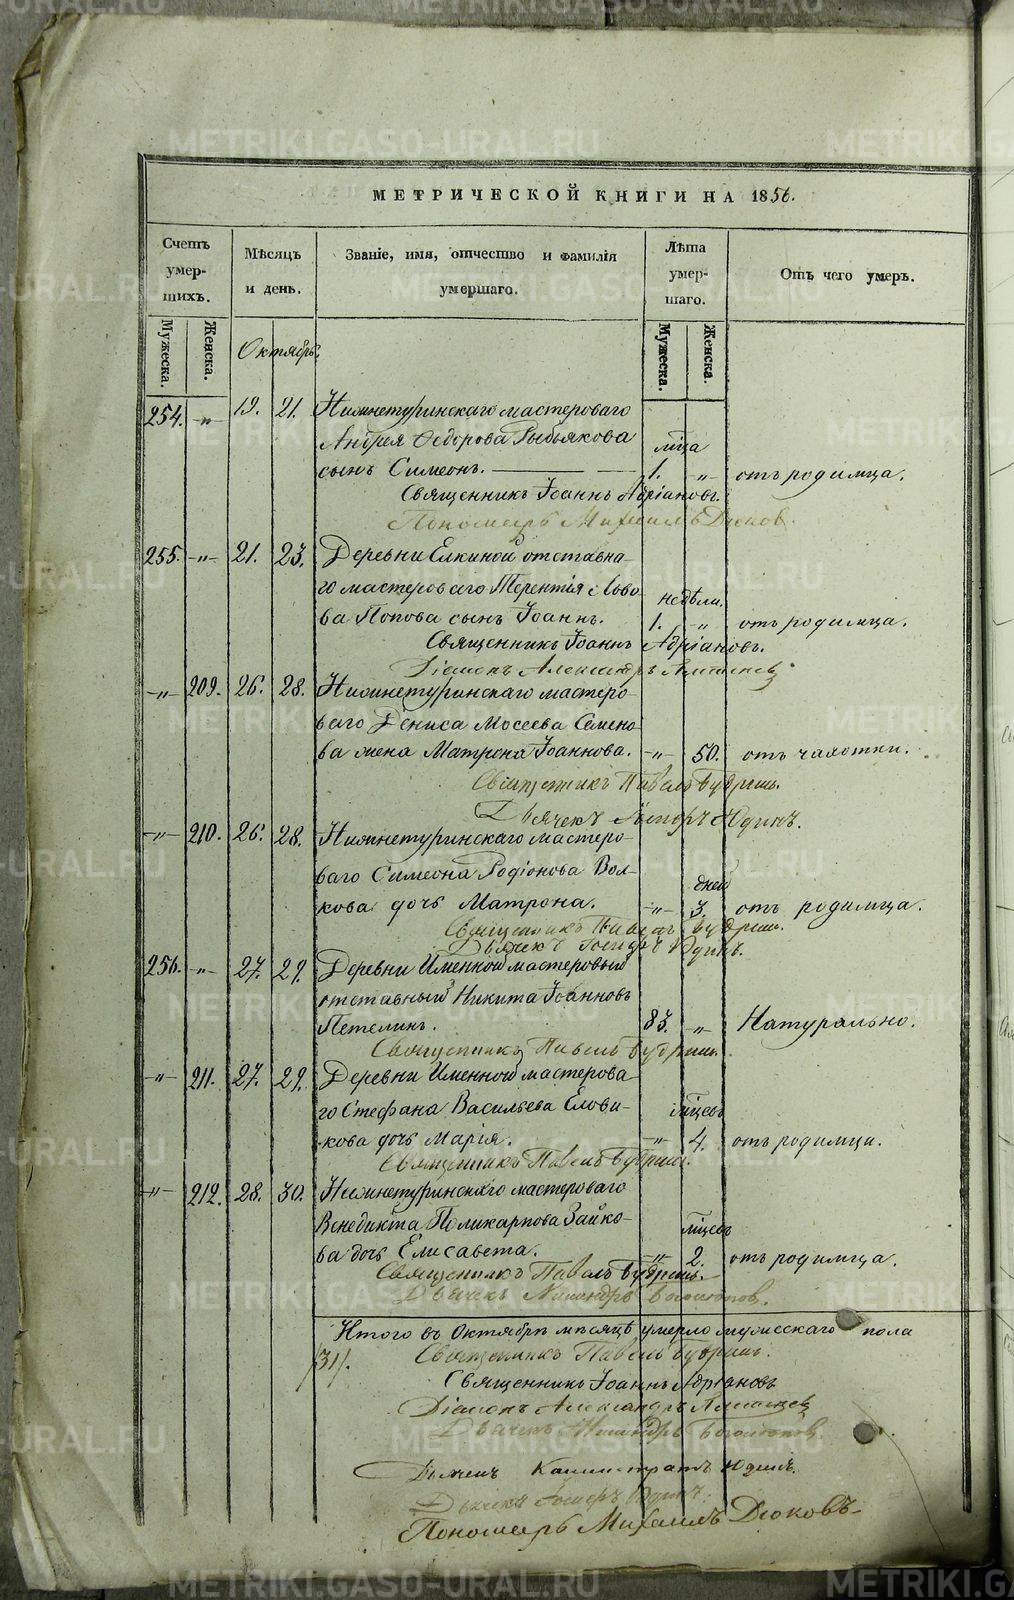 МЕТРИЧЕСКОЙ КНИГИ НА 1856.
Счетъ умер-шихъ.
Мужеска.
Женска.
Мѣсяцъ и день.
Званіе, имя, отчество и фамилія умершаго.
Лѣта умер-шаго.
Мужеска.
Женска.
Отъ чего умеръ.
Октябрь.
254. -„- 19. 21. Нижнетуринскаго мастероваго
Андрея Ѳедорова
мѣсяца
сынъ Симеонъ. 1. -„- отъ родимца.
Священникъ Іоаннъ Адріановъ.
Пономарь Михаилъ Дюковъ.
255. -„- 21. 23. Деревни Елкиной отставна-
го мастероваго Терентія
недѣли.
ва Попова сынъ Іоаннъ. 1. „ отъ родимца.
Священникъ Іоаннъ Адріановъ.
Діаконъ Александръ
-„- 209. 26. 28. Нижнетуринскаго мастеро-
ваго Дениса Мосеева Семено-
ва жена Матрона Іоаннова. -„- 50. отъ чахотки.
Священникъ Павелъ
Дьячекъ Юдинъ.
-„- 210. 26. 28. Нижнетуринскаго мастеро-
ваго Симеона Родіонова Вол-
дней
кова дочь Матрона. -„- 3. отъ родимца.
Священникъ Павелъ
Дьячекъ Юдинъ.
256. -„- 27. 29. Деревни Именной мастеровый
отставный Никита Іоанновъ
Петелинъ. 83. -„- Натурально.
Священникъ Павелъ
-„- 211. 27. 29. Деревни Именной мастерова-
го Стефана Васильева Елови-
кова дочь Марія. -„- 4. отъ родимца.
Священникъ Павелъ
-„- 212. 28. 30. Нижнетуринскаго мастероваго
Венедикта Поликарпова Зайко-
ва дочь Елисавета. -„- 2. отъ родимца.
Священникъ Павелъ
Дьячекъ
Итого въ Октябрѣ мѣсяцѣ умерло мужескаго пола
/31/.
Священникъ Павелъ
Священникъ Іоаннъ Адріановъ
Діаконъ Александръ
Дьячекъ
Дьячекъ Калистратъ Юдинъ.
Дьячекъ Юдинъ.
Пономарь Михаилъ Дюковъ
METRIKI.GASO-URAL.RU